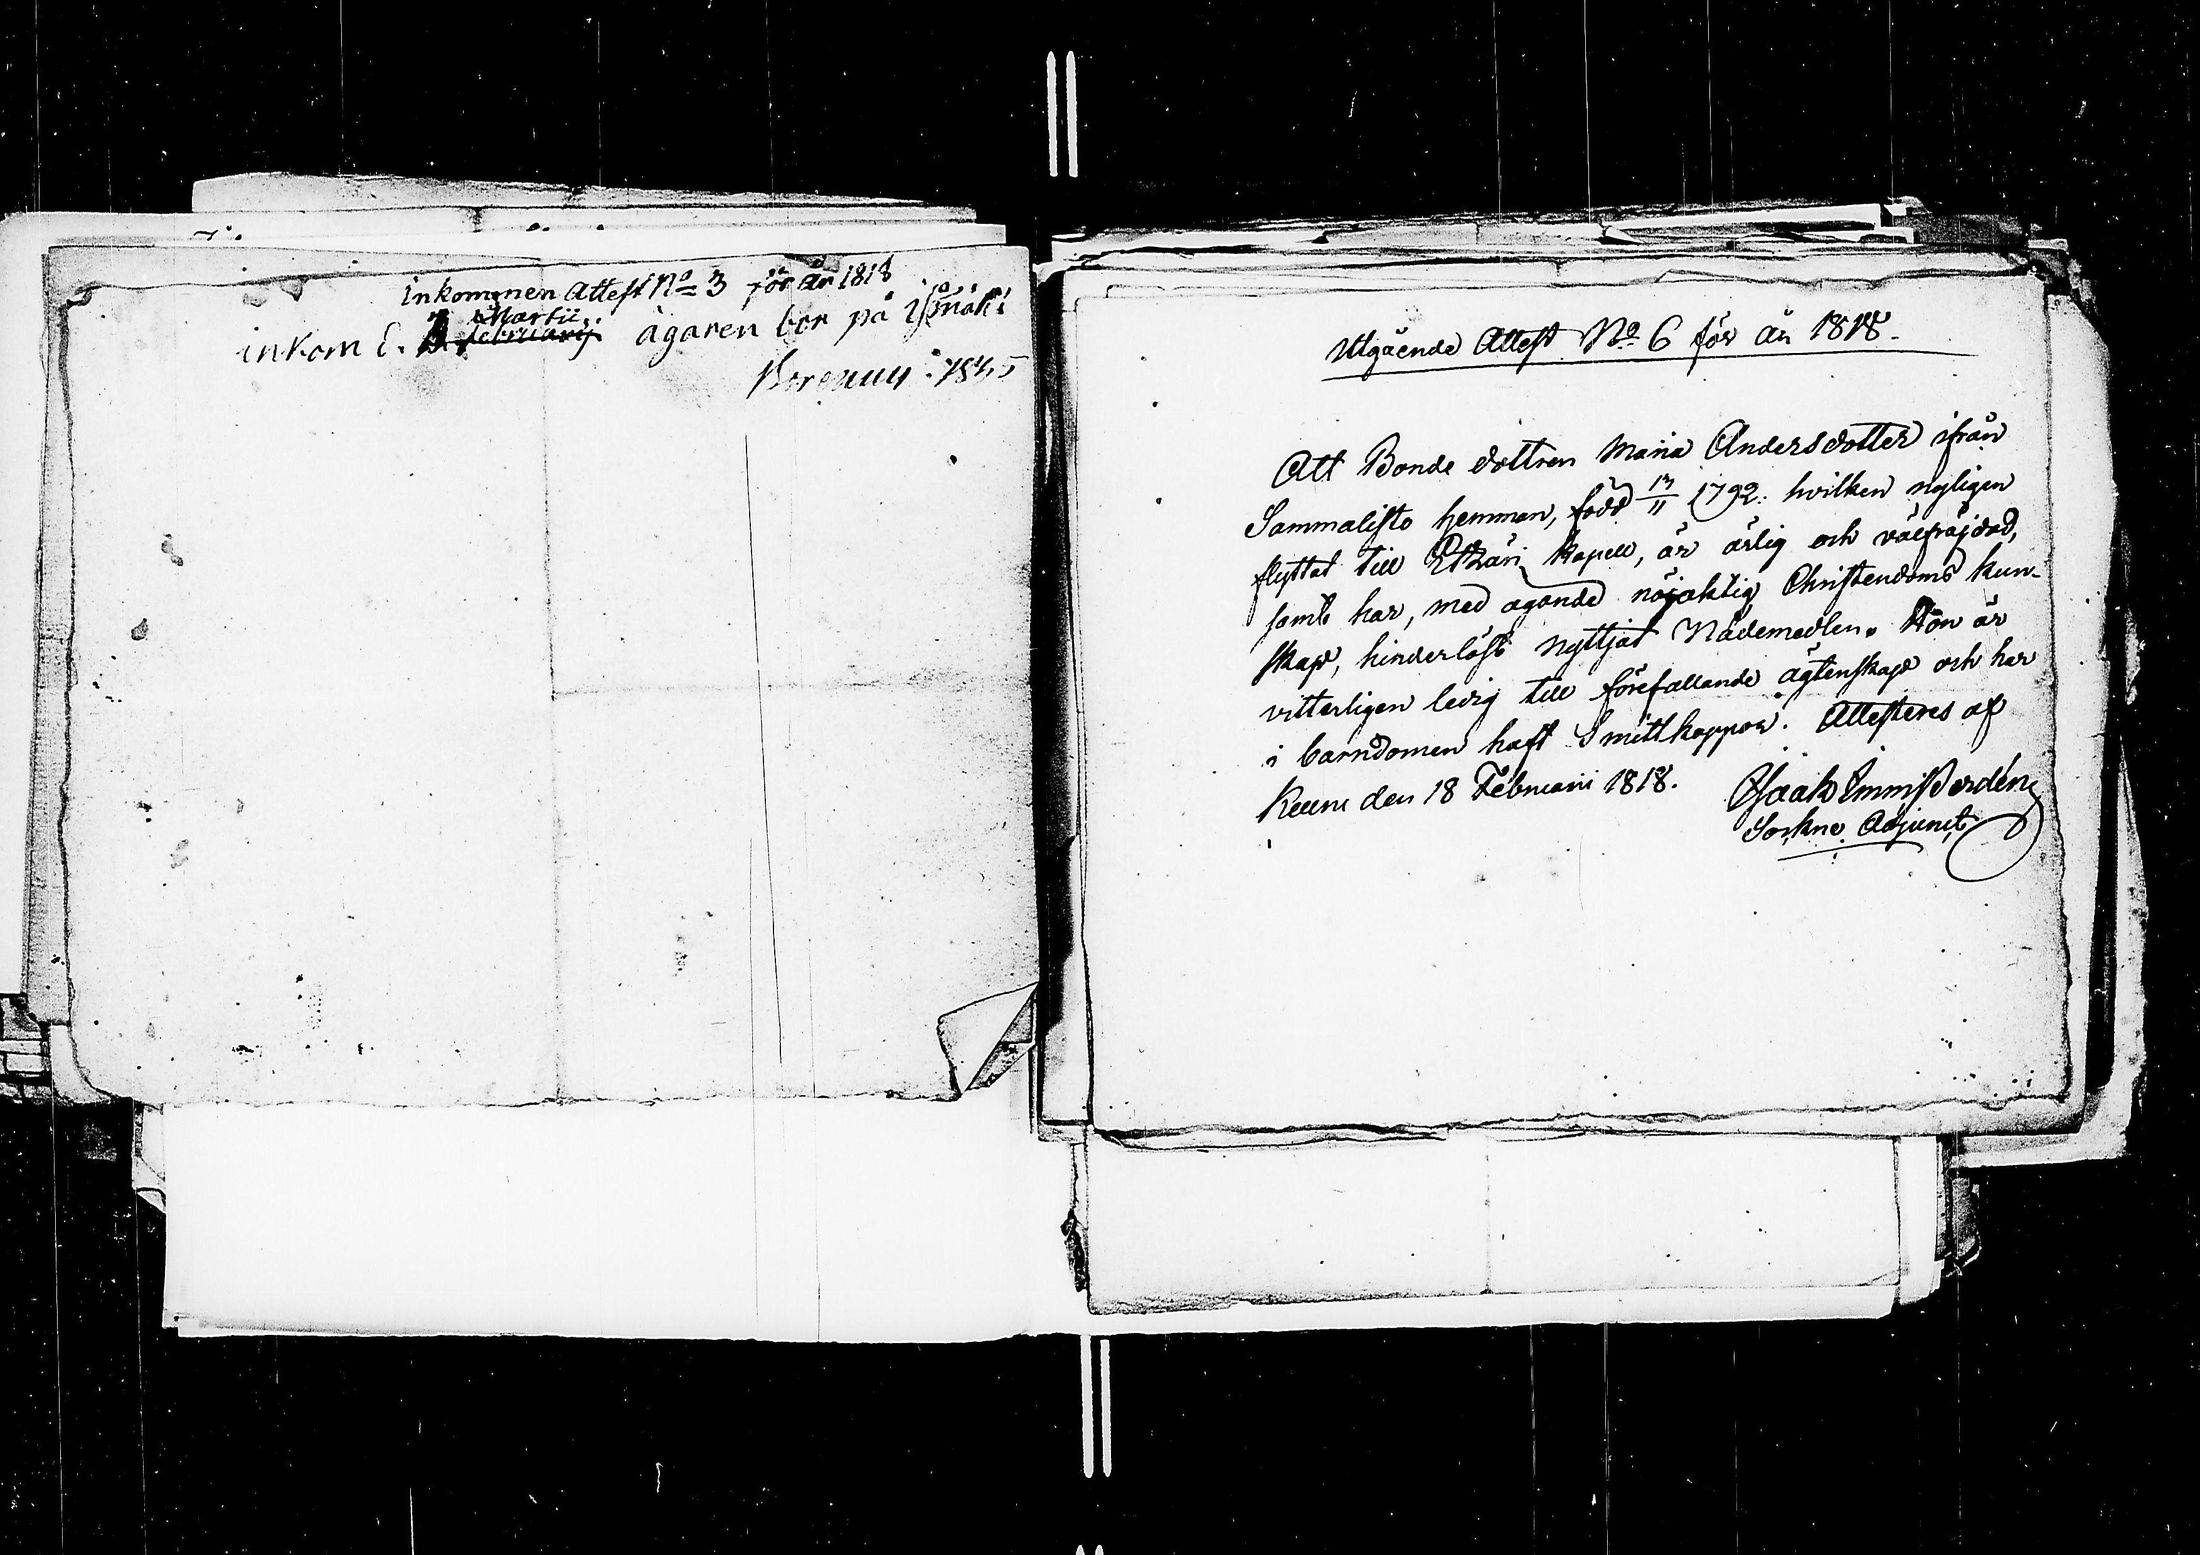 inkommen Attest No 3 för år 1818
inkom d. 1 Martii ägaren bor på
Utgående Attest No 6 för år 1818.
Att Bonde dottren Maria Andersdotter ifrån
Sammalisto hemman, född 13/11 1792. hvilken nyligen
flyttat till Etzäri kapell, är ärlig och välfräjdad,
samt har, med ägande nöjaktig Christendoms kun-
skap, hinderlöst nyttjat Nådemedlen. Hon är
vitterligen ledig till förefallande ägtenskap och har
i barndomen haft Smittkoppor. Attesteras af
Keuru den 18 Februarii 1818.
Isaak
Sockne Adjunct